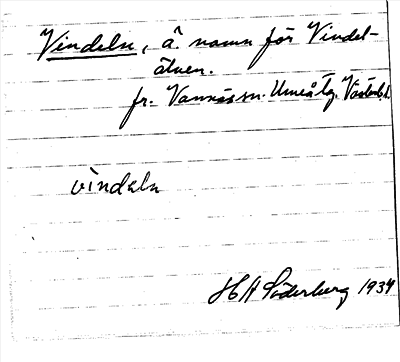 Vindeln, å. namn för Vindel-
älven.
fr. Vännäs sn. Umeå tg. Västerb. l.
vindeln
H A Söderberg 1934